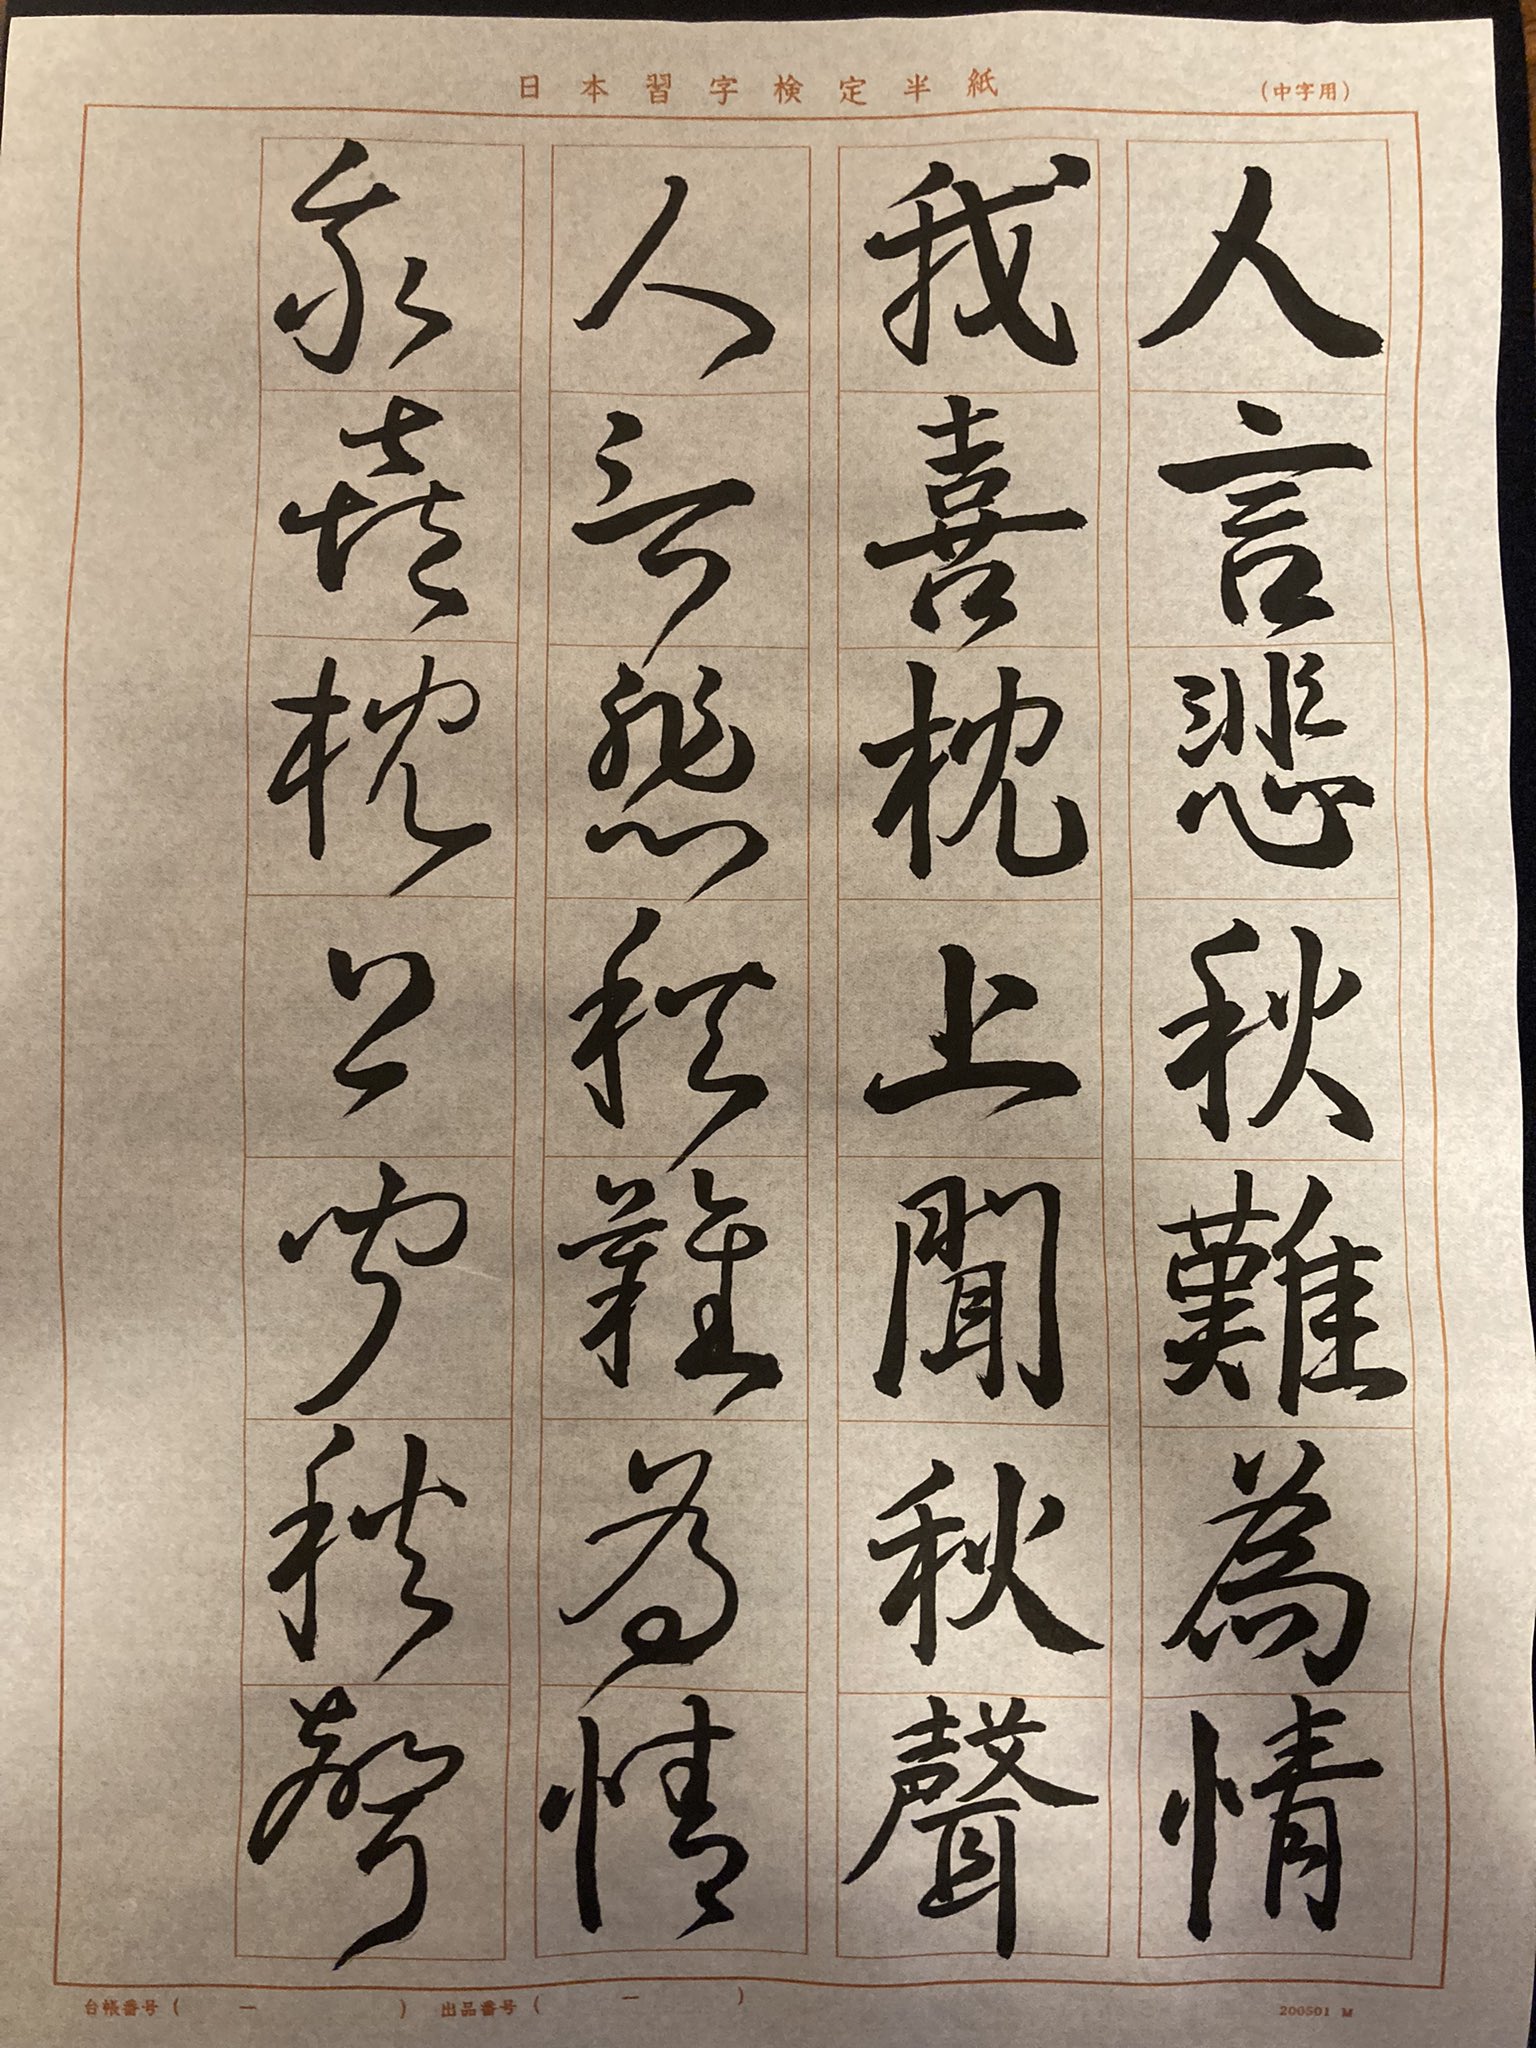 日本習字検定半紙
(中字用)
人言悲秋難為情
我喜枕上聞秋聲
人言悲秋難為情
我喜枕上聞秋聲
台帳番号( ー )
出品番号( ー )
200501 M